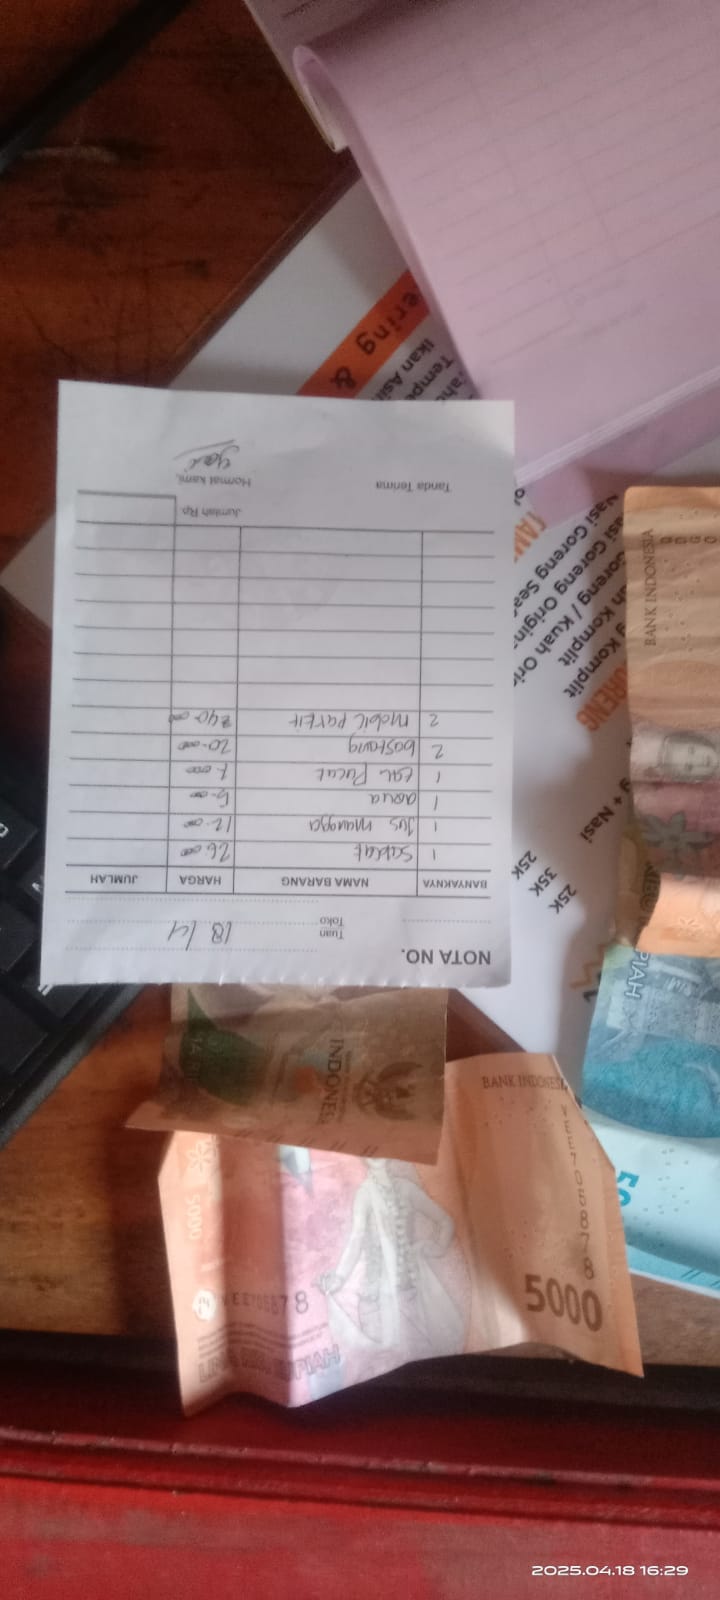 NOTA NO.
Tuan
Toko
18/4
BANYAKNYA NAMA BARANG HARGA JUMLAH
1 26.000
1 Jus mangga 12.000
1 aqua 5.000
1 Pucat
2 20.000
2 Mobil Parkir 40.000
Jumlah Rp
Tanda Terima Hormat kami,
ering &
Tempe
Ikan Asi
Nasi Goreng Sea
asi Goreng Origin
Goreng / Kuah Ori
h Komplit
g Komplit
ORENG
g + Nasi
25K
35K
25K
BANK INDONESIA
PIAH
INDONESIA
BANK INDONESIA
5000
5000
LIMA RIBU RUPIAH
2025.04.18 16:29